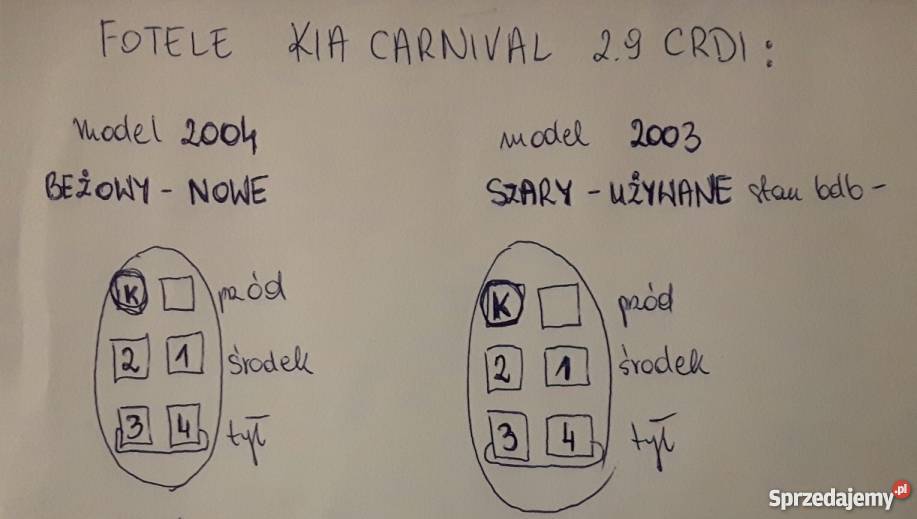 FOTELE KIA CARNIVAL 2.9 CRDI :
model 2004
BEŻOWY - NOWE
K przód
2 1 środek
3 4 tył
model 2003
SZARY - UŻYWANE stan bdb -
K przód
2 1 środek
3 4 tył
Sprzedajemy.pl